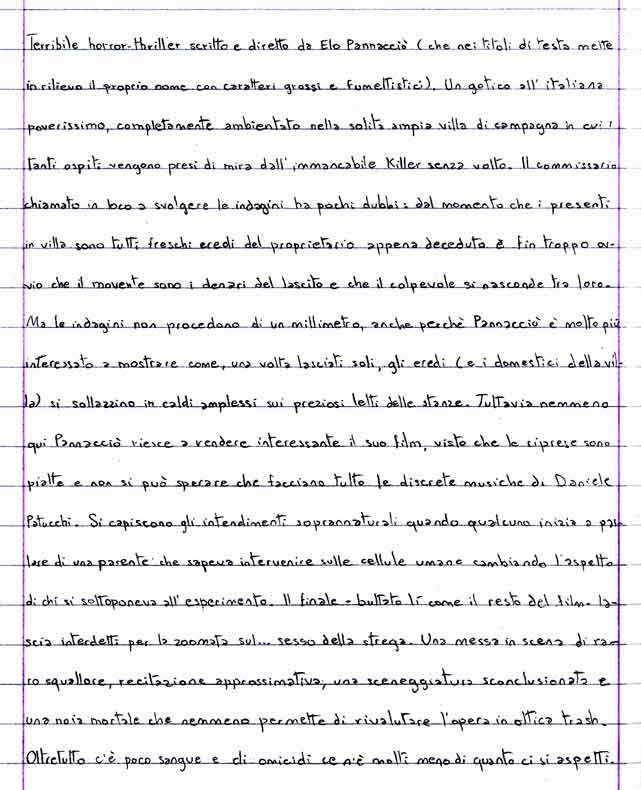 Terribile horror-thriller scritto e diretto da Elo Pannacciò (che nei titoli di testa mette
in rilievo il proprio nome con caratteri grossi e fumettistici). Un gotico all'italiana
poverissimo, completamente ambientato nella solita ampia villa di campagna in cui i
tanti ospiti vengono presi di mira dall'immancabile Killer senza volto. Il commissario
chiamato in loco a svolgere le indagini ha pochi dubbi: dal momento che i presenti
in villa sono tutti freschi eredi del proprietario appena deceduto è fin troppo ov-
vio che il movente sono i denari del lascito e che il colpevole si nasconde tra loro.
Ma le indagini non procedono di un millimetro, anche perchè Pannacciò è molto più
interessato a mostrare come, una volta lasciati soli, gli eredi (e i domestici della vil-
la) si sollazzino in caldi amplessi sui preziosi letti delle stanze. Tuttavia nemmeno
qui Pannacciò riesce a rendere interessante il suo film, visto che le riprese sono
piatte e non si può sperare che facciano tutto le discrete musiche di Daniele
Patucchi. Si capiscono gli intendimenti soprannaturali quando qualcuno inizia a par
lare di una parente che sapeva intervenire sulle cellule umane cambiando l'aspetto
di chi si sottoponeva all'esperimento. Il finale - buttato lì come il resto del film - la-
scia interdetti per la zoomata sul... sesso della strega. Una messa in scena di ra-
ro squallore, recitazione approssimativa, una sceneggiatura sconclusionata e
una noia mortale che nemmeno permette di rivalutare l'opera in ottica trash.
Oltretutto c'è poco sangue e di omicidi ce n'è molti meno di quanto ci si aspetti.